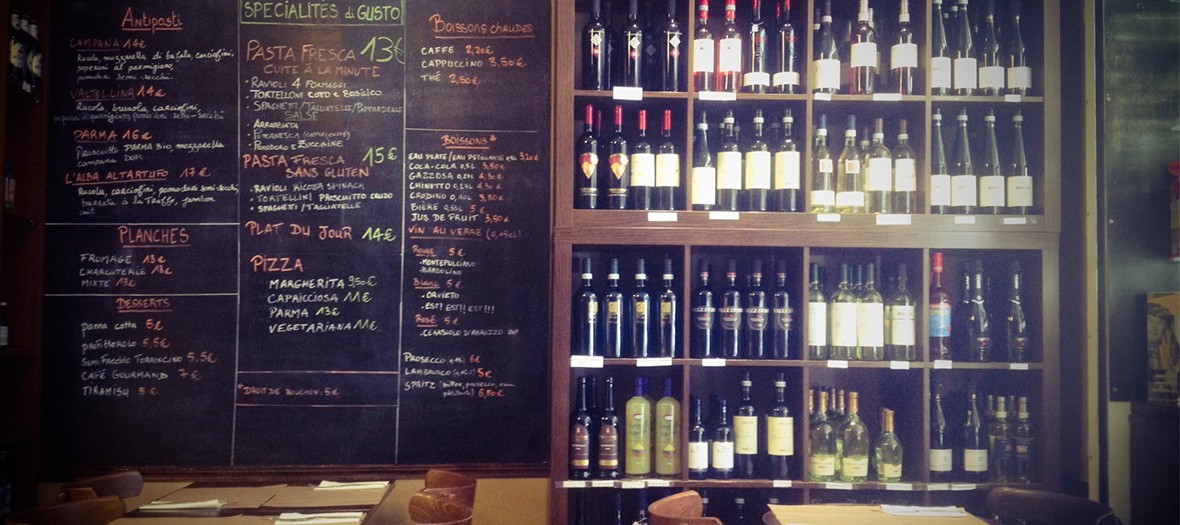 Antipasti
CAMPANA 14€
Rucola, mozzarella di bufala, carciofini,
peperoni al parmigiano,
pomodori semi-secchi.
VALTELLINA 14€
Rucola, bresaola, carciofini,
parmigiano, pomodori semi-secchi
PARMA 16€
Prosciutto PARMA BIO, mozzarella
campana DOP.
L'ALBA ALTARTUFO 17€
Rucola, carciofini, pomodori semi-secchi,
burrata à la Truffe, jambon
cuit
PLANCHES
FROMAGE 13€
CHARCUTERIE 13€
MIXTE 13€
DESSERTS
panna cotta 5€
profiterolo 5,5€
SEMI FREDDO TORRONCINO 5,5€
CAFÉ GOURMAND 7€
TIRAMISU 5€
SPECIALITÉS di GUSTO
PASTA FRESCA 13€
CUITE À LA MINUTE
- RAVIOLI 4 FORMAGGI
- TORTELLONI COTO e BASILICO
- SPAGHETTI/TAGLIATELLE/PAPPARDELLE
SALSE
- ARRABIATA
- POMODORO e ZUCCHINE
PASTA FRESCA 15€
SANS GLUTEN
- RAVIOLI RICOTTA SPINACH
- TORTELLINI PROSCIUTTO CRUDO
- SPAGHETTI/TAGLIATELLE
PLAT DU JOUR 14€
PIZZA
MARGHERITA 9,50€
CAPRICCIOSA 11€
PARMA 13€
VEGETARIANA 11€
*DROIT DE BOUCHON: 5€
BOISSONS CHAUDES
CAFFE 2,20€
CAPPUCCINO 3,50€
THÉ 2,50€
BOISSONS*
EAU PLATE/EAU PETILLANTE 3,20€
COCA-COLA 0,5L 3,50€
GAZZOSA 0,27L 3€
CHINOTTO 0,27L 3€
CRODINO 0,10L 3€
BIÈRE 0,33L 5€
JUS DE FRUIT 3,50€
VIN AU VERRE
ROUGE 5€
- MONTEPULCIANO
- BARDOLINO
BLANC 5€
- ORVIETO
- EST! EST!! EST!!!
ROSÉ 5€
- CERASUOLO D'ABRUZZO DOP
PROSECCO 6€
LAMBRUSCO 5€
SPRITZ 6,50€